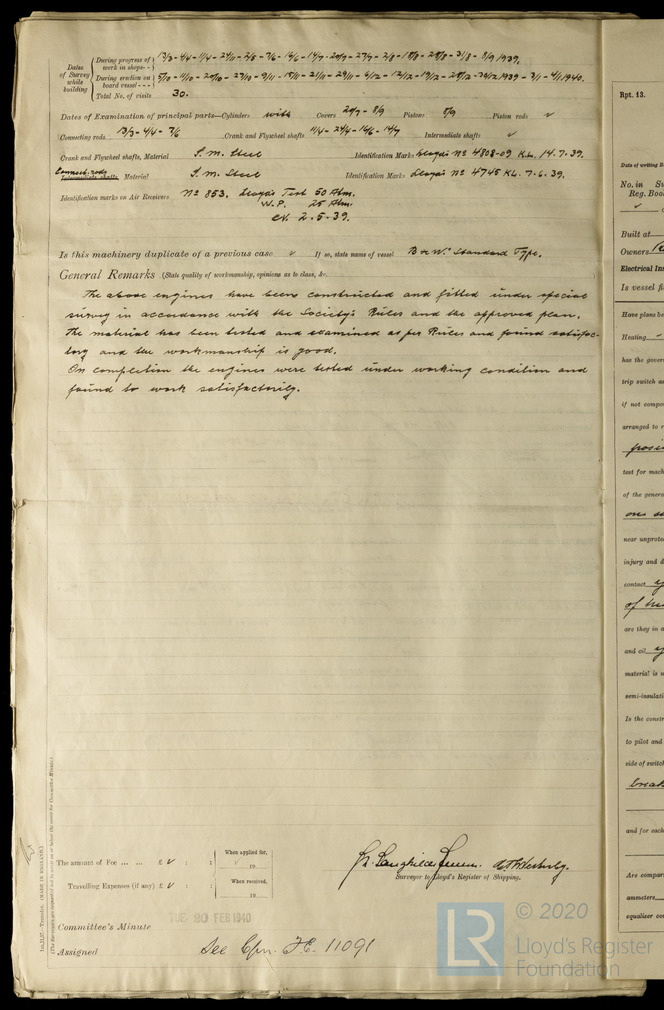 Dates of Survey while building
During progress of work in shops - - 13/3 - 4/4 - 11/4 - 24/4 - 2/5 - 7/6 - 16/6 - 14/7 - 20/7 - 27/7 - 2/8 - 18/8 - 28/8 - 31/8 - 8/9 1939.
During erection on board vessel - - - 5/10 - 11/10 - 20/10 - 27/10 - 9/11 - 15/11 - 21/11 - 29/11 - 6/12 - 12/12 - 19/12 - 28/12 - 1939 - 3/1 - 4/1 1940.
Total No. of visits 30.
Dates of Examination of principal parts—Cylinders with Covers 20/7 - 8/9 Pistons 8/9 Piston rods ✓
Connecting rods 13/3 - 4/4 - 7/6 Crank and Flywheel shafts 11/4 - 24/4 - 16/6 - 14/7 Intermediate shafts ✓
Crank and Flywheel shafts, Material S. M. Steel Identification Marks Lloyd's No 4808-09 K.L. 14.7.39.
Connect. rods
Intermediate shafts, Material S. M. Steel Identification Marks Lloyd's No 4745 K.L. 7.6.39.
Identification marks on Air Receivers No 853. Lloyd's Test 50 Atm.
W.P. 25 Atm.
2.5.39.
Is this machinery duplicate of a previous case ✓ If so, state name of vessel B & W. Standard Type.
General Remarks (State quality of workmanship, opinions as to class, &c.
The above engines have been constructed and fitted under special
survey in accordance with the Society's Rules and the approved plan.
The material has been tested and examined as per Rules and found satisfac-
tory and the workmanship is good.
On completion the engines were tested under working condition and
found to work satisfactorily.
The amount of Fee ... ... £ ✓ : :
When applied for,
✓ 19
Travelling Expenses (if any) £ ✓ : :
When received,
19
Surveyor to Lloyd's Register of Shipping.
Committee's Minute TUE 20 FEB 1940
Assigned See F.E. 11091
(MADE IN ENGLAND.)
(The Surveyors are requested not to write on or below the space for Committee's Minute.)
© 2020
LR
Lloyd's Register
Foundation
Rpt. 13.
Date of writing R
No. in Su
Reg. Boo
✓
Built at
Owners
Electrical Ins
Is vessel fi
Have plans be
Heating ✓
has the gover
trip switch as
if not compou
arranged to r
test for mach
of the genera
near unprote
injury and d
contact
are they in a
and oil
material is u
semi-insulati
Is the constr
to pilot and
side of switc
and for each
Are compar
ammeters
equaliser con